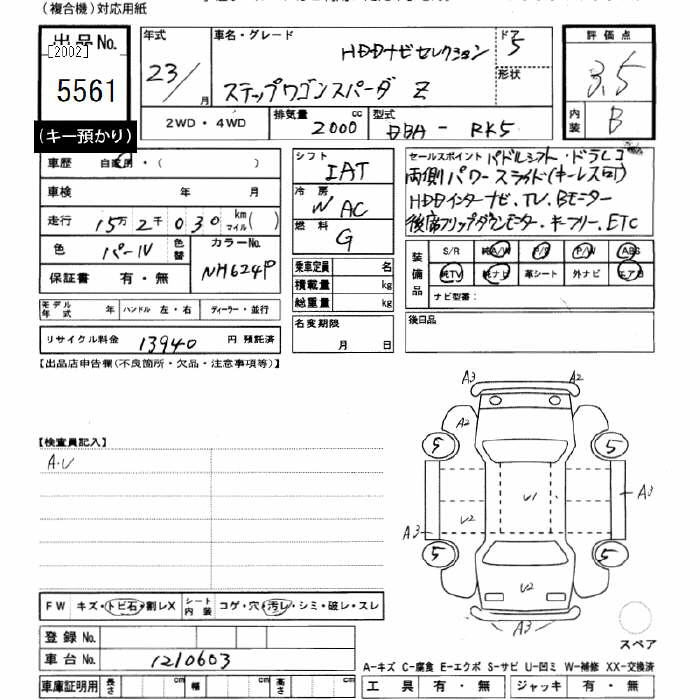 (複合機)対応用紙
出品No.
[2002]
5561
(キー預かり)
年式
23/
月
車名・グレード
HDDナビセレクション
ステップワゴンスパーダ Z
ドア
5
形状
評価点
3.5
内装
B
2WD・4WD
排気量
2000
cc
型式
DBA - RK5
車歴
自家用・( )
車検
年 月
走行
15万2千030
km
マイル
( )
色
パール
色替
カラーNo.
NH624P
保証書
有・無
モデル年式
年
ハンドル 左・右
ディーラー・並行
リサイクル料金
13940
円 預託済
シフト
IAT
冷房
W AC
燃料
G
乗車定員
名
積載量
kg
総重量
kg
名変期限
月 日
セールスポイント パドルシフト・ドラレコ
両側パワースライド(キーレス可)
HDDインターナビ、TV、Bモニター
後席フリップダウンモニター、キーフリー、ETC
装備品
S/R
純A/W
P/S
P/W
ABS
純TV
純ナビ
革シート
外ナビ
エアB
ナビ型番:
後日品
【出品店申告欄(不良箇所・欠品・注意事項等)】
【検査員記入】
A.U
A3
A2
A2
5
5
U1
A3
U2
A3
5
5
U2
A3
スペア
FW
キズ・トビ石・割レX
シート内装
コゲ・穴・汚レ・シミ・破レ・スレ
登録No.
車台No.
1210603
車庫証明用
長さ
cm
幅
cm
高さ
cm
A-キズ C-腐食 E-エクボ S-サビ U-凹ミ W-補修 XX-交換済
工具
有・無
ジャッキ
有・無